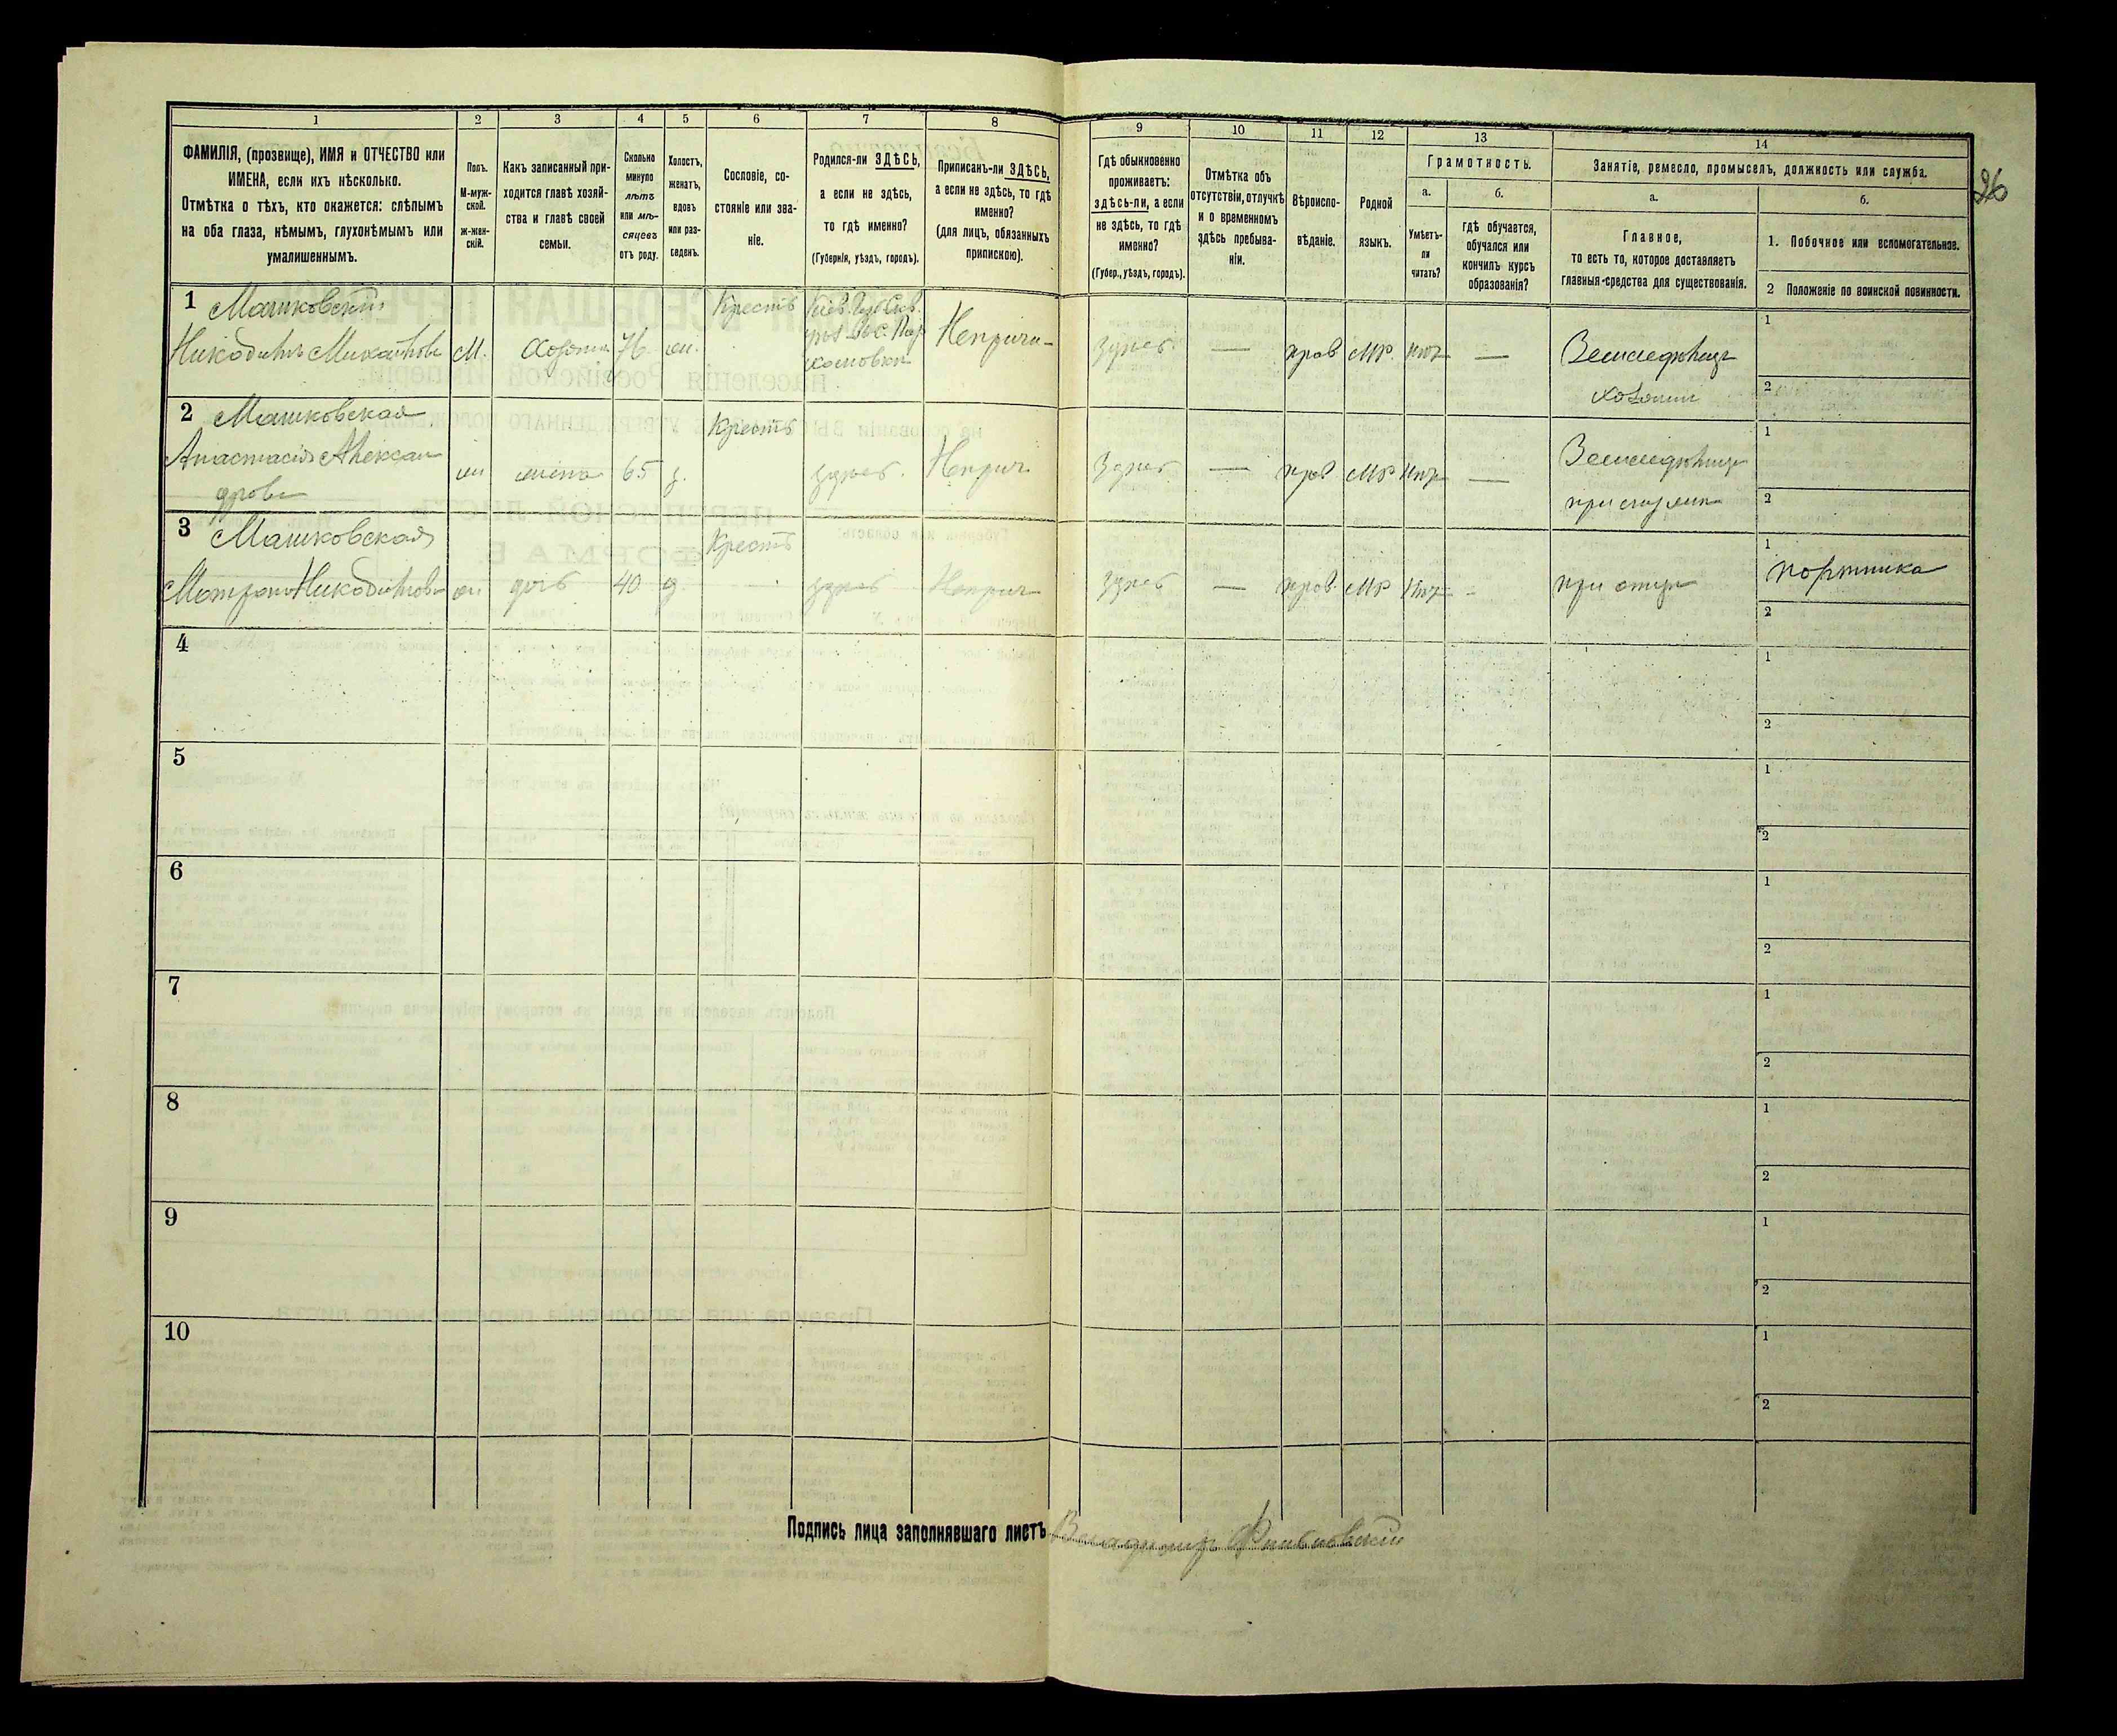 1
2
3
4
5
6
7
8
9
10
11
12
13
14
ФАМИЛІЯ, (прозвище), ИМЯ и ОТЧЕСТВО или
ИМЕНА, если ихъ нѣсколько.
Отмѣтка о тѣхъ, кто окажется: слѣпымъ
на оба глаза, нѣмымъ, глухонѣмымъ или
умалишеннымъ.
Полъ.
М-муж-
ской.
ж-жен-
скій.
Какъ записанный при-
ходится главѣ хозяй-
ства и главѣ своей
семьи.
Сколько
минуло
лѣтъ
или мѣ-
сяцевъ
отъ роду.
Холостъ,
женатъ,
вдовъ
или раз-
веденъ.
Сословіе, со-
стояніе или зва-
ніе.
Родился-ли ЗДѢСЬ,
а если не здѣсь,
то гдѣ именно?
(Губернія, уѣздъ, городъ).
Приписанъ-ли ЗДѢСЬ,
а если не здѣсь, то гдѣ
именно?
(для лицъ, обязанныхъ
припискою).
Гдѣ обыкновенно
проживаетъ:
здѣсь-ли, а если
не здѣсь, то гдѣ
именно?
(Губер., уѣздъ, городъ).
Отмѣтка объ
отсутствіи, отлучкѣ
и о временномъ
здѣсь пребыва-
ніи.
Вѣроиспо-
вѣданіе.
Родной
языкъ.
Грамотность.
а.
Умѣетъ-
ли
читать?
б.
гдѣ обучается,
обучался или
кончилъ курсъ
образованія?
Занятіе, ремесло, промыселъ, должность или служба.
а.
Главное,
то есть то, которое доставляетъ
главныя-средства для существованія.
б.
1. Побочное или вспомогательное.
2 Положеніе по воинской повинности.
26
1 Машковскій
Никодимъ Михайловъ М. Хозяинъ 76 жен.
Крестъ
Кіев. Губ.
Неприпи-
здѣсь — прав МР нѣтъ —
Земледѣлецъ
хозяинъ
1
2
2 Машковская
Анастасія Алексан
дрова
жена 65 з.
Крестъ
здѣсь. Неприп
здѣсь — прав МР нѣтъ —
Земледѣлецъ
1
2
3 Машковская
Матрона Никодимова дочь 40 д.
Крестъ
здѣсь Неприп
здѣсь — прав. МР нѣтъ -
при отцѣ
1
портниха
2
4
1
2
5
1
2
6
1
2
7
1
2
8
1
2
9
1
2
10
1
2
Подпись лица заполнявшаго листъ Владимиръ